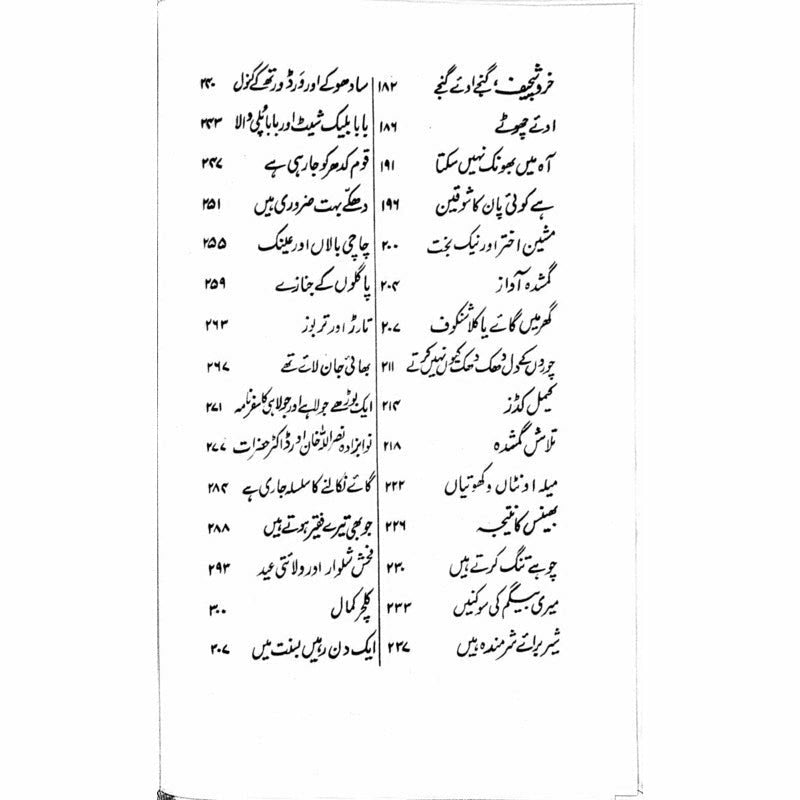 خروشچیف، گنجے ادئے گنجے ۱۸۲
ادئے چھوٹے ۱۸۶
آہ میں بھونک نہیں سکتا ۱۹۱
ہے کوئی پان کا شوقین ۱۹۶
مشین اختر اور نیک بخت ۲۰۰
گمشدہ آواز ۲۰۴
گھر میں گائے یا کلاشنکوف ۲۰۷
چوروں کے دل دھک دھک کیوں نہیں کرتے ۲۱۱
کیمل کڈز ۲۱۴
تلاش گمشدہ ۲۱۸
میلہ اونٹاں و کھوتیاں ۲۲۲
بھینس کا نتیجہ ۲۲۶
چوہے تنگ کرتے ہیں ۲۳۰
میری بیگم کی سوکنیں ۲۳۳
شیر برائے شرمندہ ہیں ۲۳۷
سادھوکے اور ورڈ ورتھ کے کنول ۲۴۰
بابا بلیک شیٹ اور بابا پُلی والا ۲۴۳
قوم کدھر کو جا رہی ہے ۲۴۷
دھکے بہت ضروری ہیں ۲۵۱
چاچی بالاں اور عینک ۲۵۵
پاگلوں کے جنازے ۲۵۹
تارڑ اور تربوز ۲۶۳
بھائی جان لائے تھے ۲۶۷
ایک بوڑھے جولاہے اور جولاہی کا سفرنامہ ۲۷۱
نوابزادہ نصراللہ خان اور ڈاکٹر حضرات ۲۷۷
گائے نکالنے کا سلسلہ جاری ہے ۲۸۴
جو بھی تیرے فقیر ہوتے ہیں ۲۸۸
فحش شلوار اور ولائتی عید ۲۹۳
کلچر کمال ۳۰۰
ایک دن رہیں بسنت میں ۳۰۷